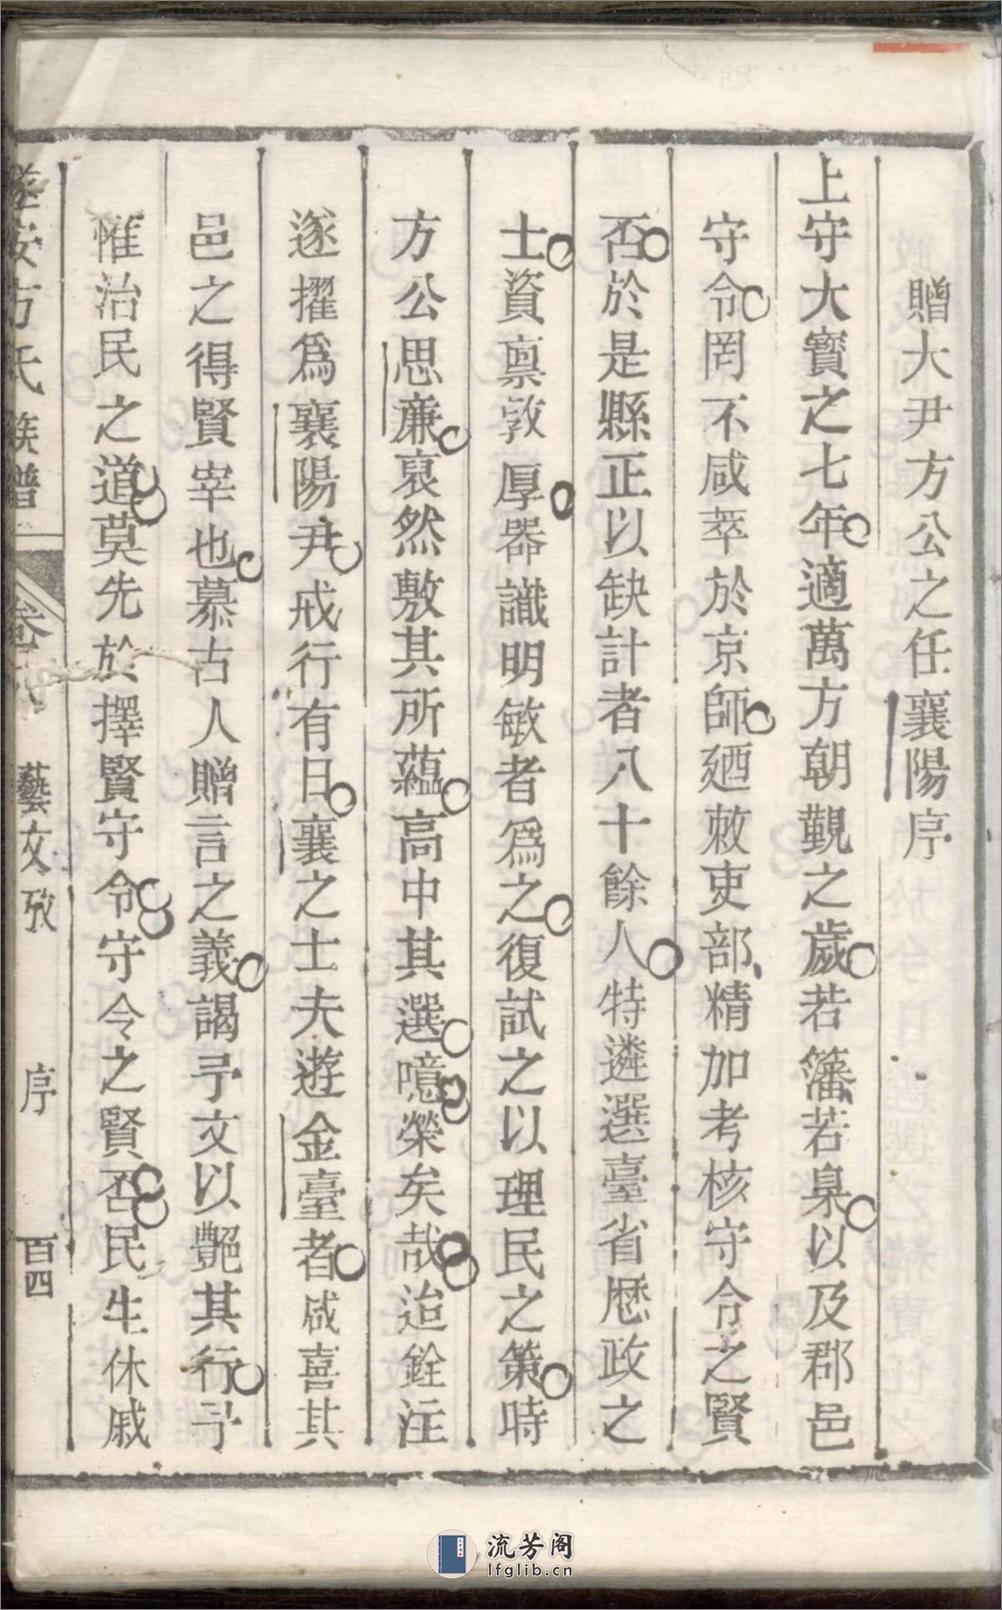 贈大尹方公之任襄陽序
上守大寳之七年適萬方朝覲之歲若籓若臬以及郡邑
守令罔不咸萃於京師廼敕吏部精加考核守令之賢
否於是縣正以缺計者八十餘人特遴選臺省歷政之
士資禀敦厚器識明敏者爲之復試之以理民之策時
方公思廉裒然敷其所蘊高中其選噫榮矣哉迨銓注
遂擢爲襄陽尹戒行有日襄之士夫遊金臺者咸喜其
邑之得賢宰也慕古人贈言之義謁予文以艷其行予
惟治民之道莫先於擇賢守令守令之賢否民生休戚
遂安方氏族譜 卷八 藝文攷 序 百四
流芳阁
lfglib.cn